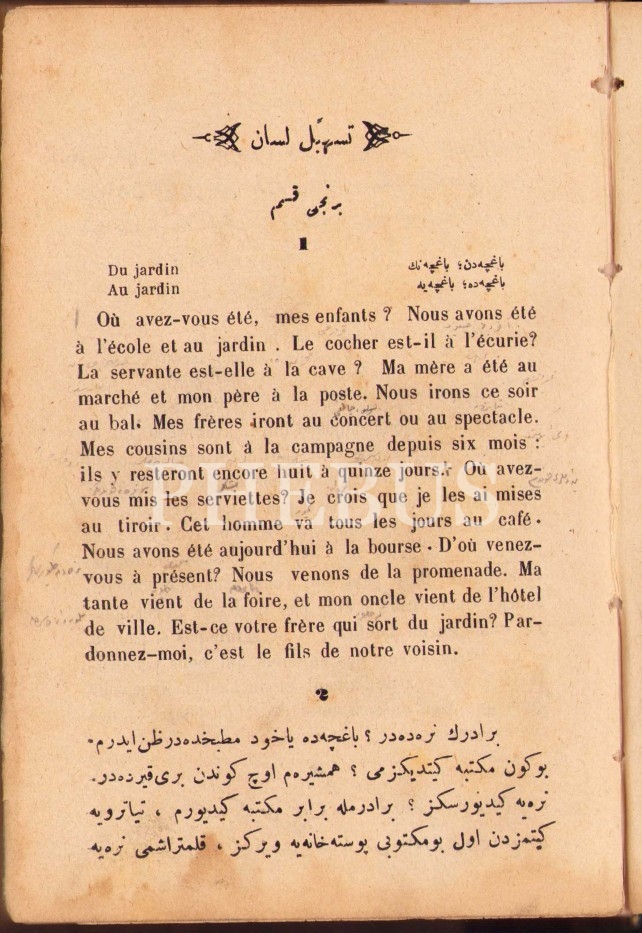 تسهيل لسان
برنجى قسم
1
Du jardin باغچه‌دن؛ باغچه‌نك
Au jardin باغچه‌ده؛ باغچه‌يه
Où avez-vous été, mes enfants ? Nous avons été
à l'école et au jardin . Le cocher est-il à l'écurie?
La servante est-elle à la cave ? Ma mère a été au
marché et mon père à la poste. Nous irons ce soir
au bal. Mes frères iront au concert ou au spectacle.
Mes cousins sont à la campagne depuis six mois :
ils y resteront encore huit à quinze jours. Où avez-
vous mis les serviettes? Je crois que je les ai mises
au tiroir. Cet homme va tous les jours au café.
Nous avons été aujourd'hui à la bourse . D'où venez-
vous à présent? Nous venons de la promenade. Ma
tante vient de la foire, et mon oncle vient de l'hôtel
de ville. Est-ce votre frère qui sort du jardin? Par-
donnez-moi, c'est le fils de notre voisin.
2
برادرك نره‌ده‌در ؟ باغچه‌ده ياخود مطبخده‌در ظن ايدرم.
بوكون مكتبه كيتديكزمى ؟ همشيره‌م اوچ كوندن برى قيرده‌در.
نره‌يه كيديورسكز ؟ برادرمله برابر مكتبه كيديورم ، تياترويه
كيتمزدن اول بومكتوبى پوسته‌خانه‌يه ويركز ، قلمتراشمى نره‌يه
PHEBUS